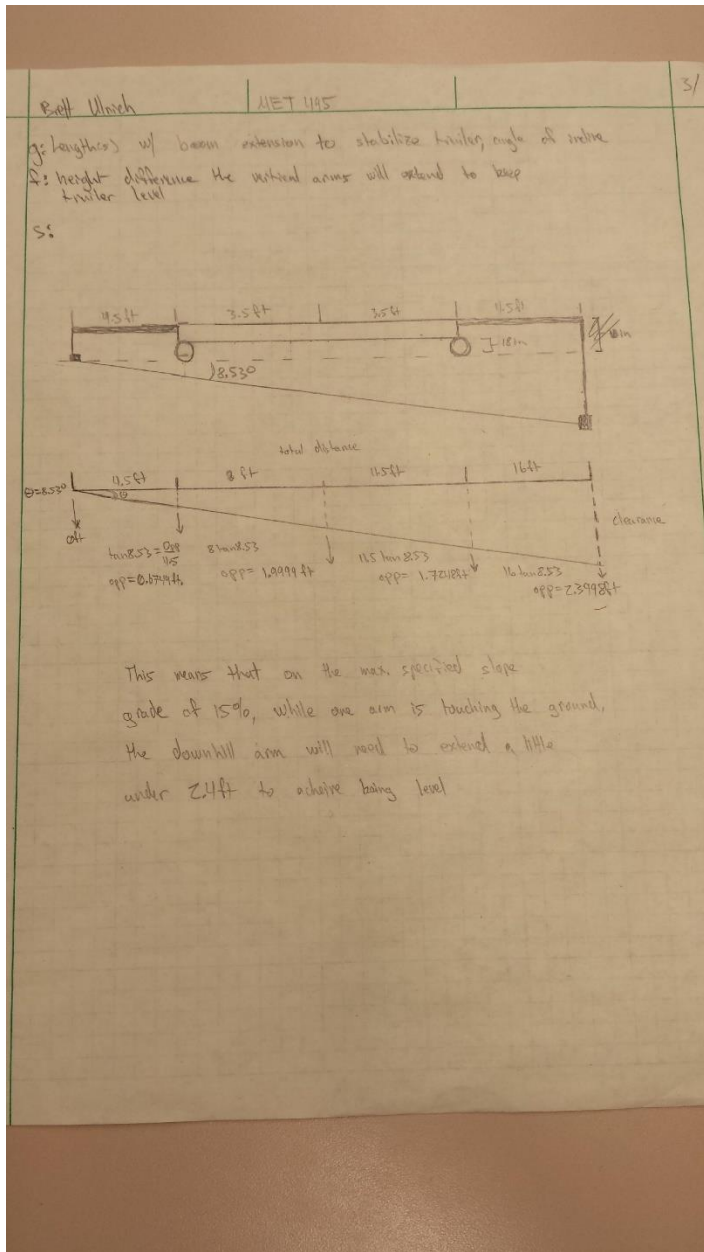 3/
Brett Ulrich MET 495
g: Length(s) w/ beam extension to stabilize trailer, angle of incline
f: height difference the vertical arms will extend to keep
trailer level
S:
4.5ft 3.5ft 3.5ft 4.5ft
18in
8.53°
total distance
θ=8.53° 4.5ft 8ft 11.5ft 16ft
θ
0ft
clearance
8 tan 8.53 11.5 tan 8.53 16 tan 8.53
opp= 1.7248ft opp=2.3998ft
This means that on the max. specified slope
grade of 15%, while one arm is touching the ground,
the downhill arm will need to extend a little
under 2.4ft to acheive being level